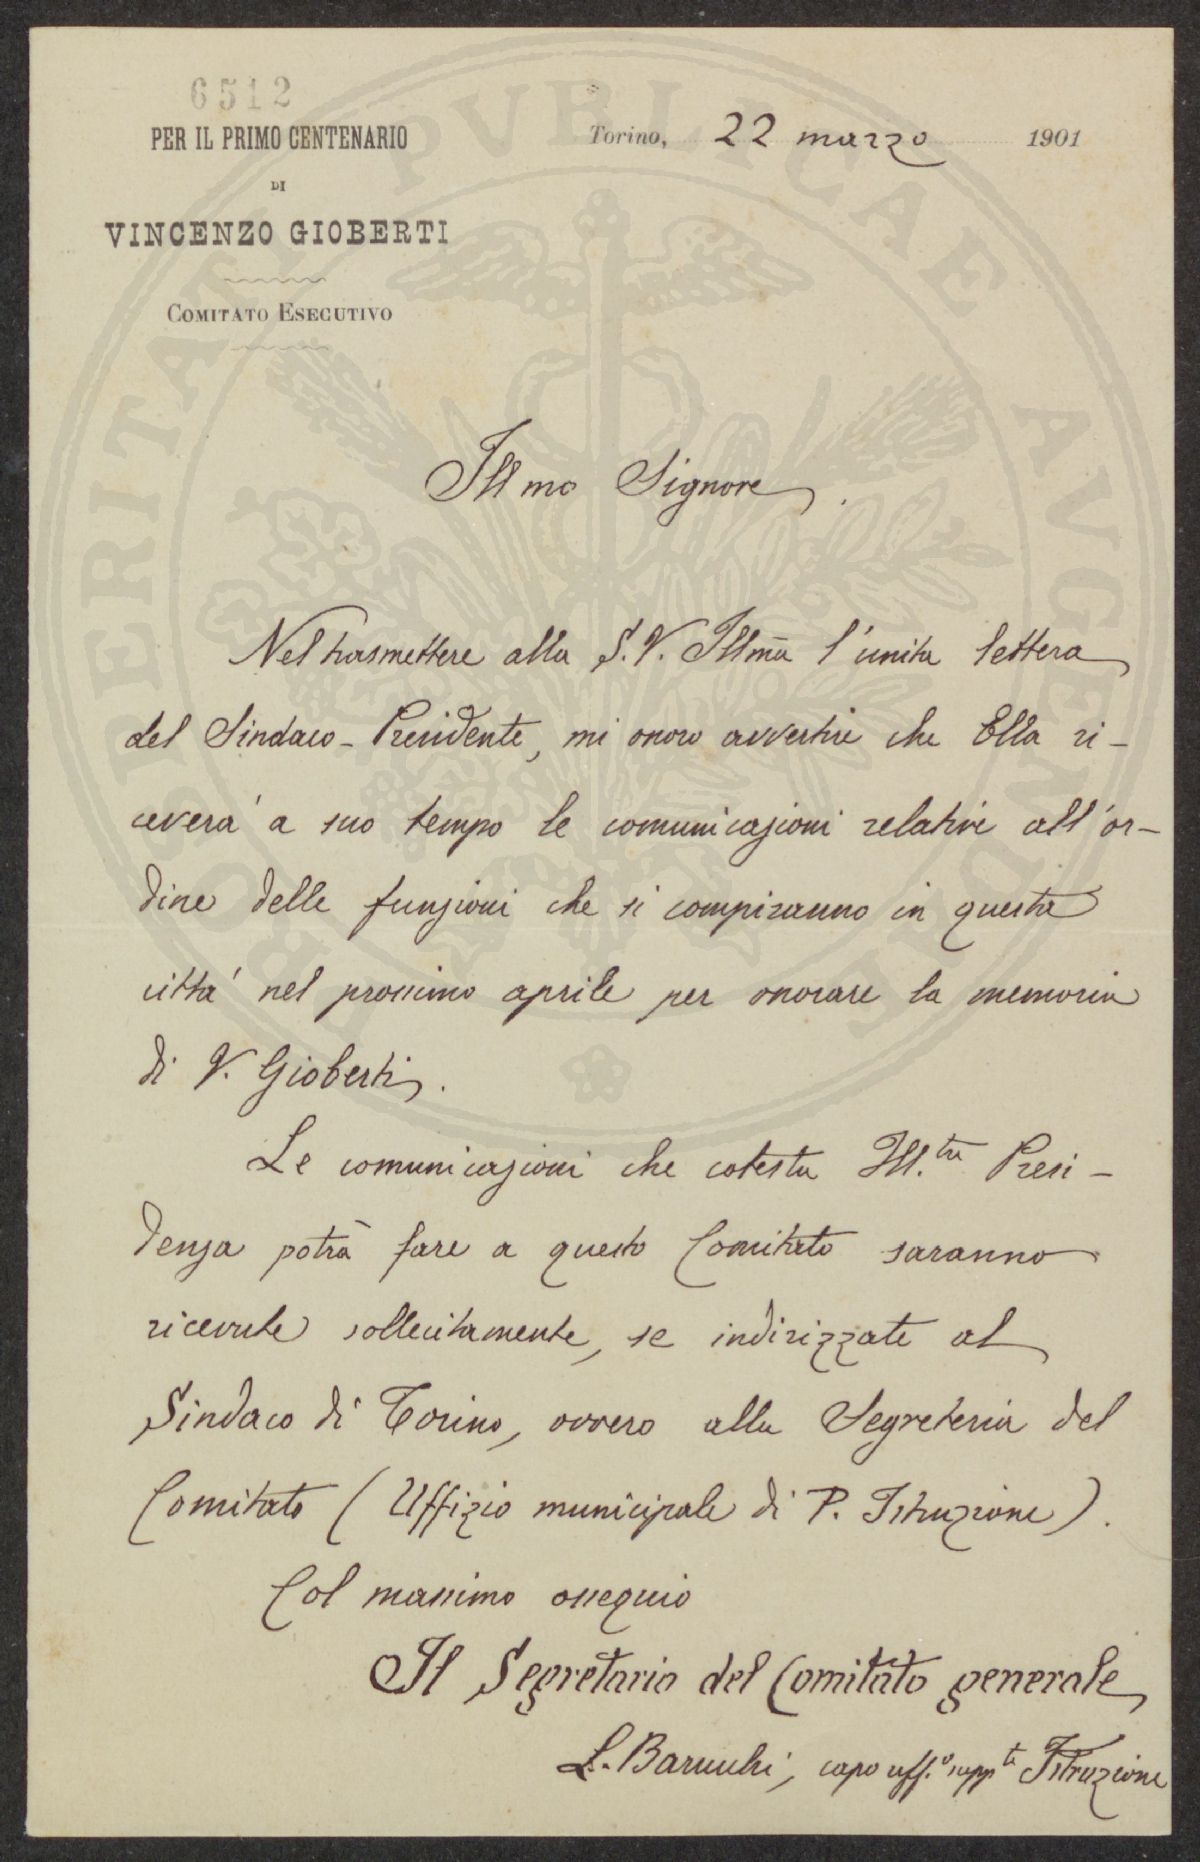 6512
PER IL PRIMO CENTENARIO
DI
VINCENZO GIOBERTI
COMITATO ESECUTIVO
Torino, 22 marzo 1901
Illmo Signore.
Nel trasmettere alla S. V. Illm̃a l'unita lettera
del Sindaco-Presidente, mi onoro avvertire che Ella ri-
ceverà a suo tempo le comunicazioni relative all'or-
dine delle funzioni che si compiranno in questa
città nel prossimo aprile per onorare la memoria
di V. Gioberti.
Le comunicazioni che cotesta Ill.tre Presi-
denza potrà fare a questo Comitato saranno
ricevute sollecitamente, se indirizzate al
Sindaco di Torino, ovvero alla Segreteria del
Comitato (Uffizio municipale di P. Istruzione).
Col massimo ossequio
Il Segretario del Comitato generale
L. Baruchi, capo uff.o Istruzione
PROSPERITATI PVBLICAE AVGENDAE